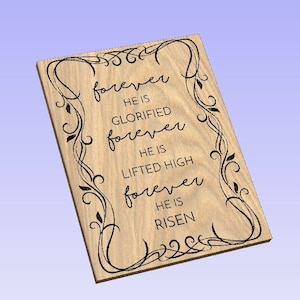 forever
HE IS
GLORIFIED
forever
HE IS
LIFTED HIGH
forever
HE IS
RISEN